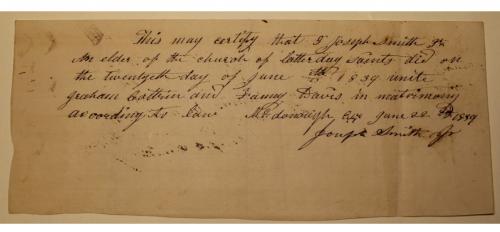 This may certify that I Joseph Smith Jr
An elder of the church of latter day Saints did on
the twentyeth day of June 1839 unite
graham Coltrin and Fanny Davis in matrimony
according to law McDonough Co June 22 1839
Joseph Smith Jr